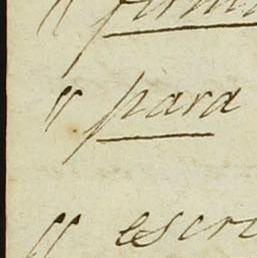 " para
" escri